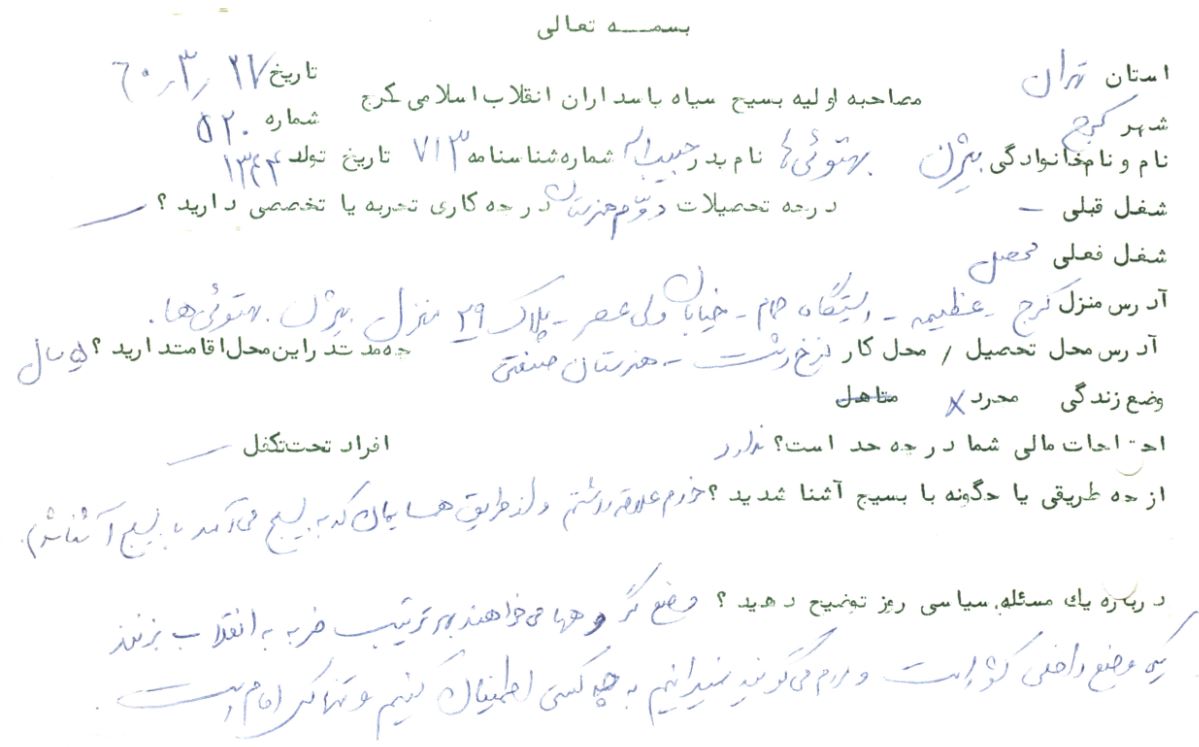 بسمه تعالی
استان تهران تاریخ ۶۰/۳/۲۷
مصاحبه اولیه بسیج سپاه پاسداران انقلاب اسلامی کرج
شهر کرج شماره ۵۲۰
نام و نام خانوادگی بیژن بهتوئی‌ها نام پدر حبیب اله شماره شناسنامه ۷۱۳ تاریخ تولد ۱۳۴۴
شغل قبلی – درجه تحصیلات دوّم هنرستان در چه کاری تجربه یا تخصصی دارید ؟ —
شغل فعلی محصل
آدرس منزل کرج - عظیمیه - ایستگاه حمام - خیابان ولی عصر - پلاک ۲۹ منزل بیژن بهتوئی‌ها.
آدرس محل تحصیل / محل کار نرخ رشت - هنرستان صنعتی چه مدتد راین محل اقامتدارید ؟ ۵ سال
وضع زندگی مجرد x متاهل
احتیاجات مالی شما در چه حد است؟ ندارد افراد تحت تکفل —
از چه طریقی یا چگونه با بسیج آشنا شدید ؟ خودم علاقه داشتم و از طریق همسایمان که به بسیج می‌آمد با بسیج آشنا شدم.
درباره یک مسئله سیاسی روز توضیح دهید ؟ وضع گروهها می‌خواهند بهر ترتیب ضربه به انقلاب بزنند
یکی وضع داخلی کشور است و مردم می‌گویند نمیدانیم به چه کسی اطمینان کنیم و تنها کس امام است.